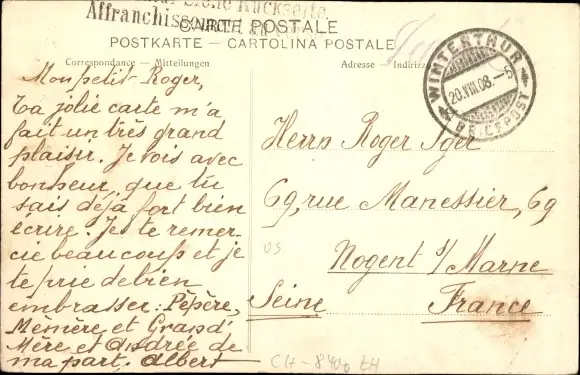 Siehe Rückseite.
Affranchissement au
CARTE POSTALE
POSTKARTE – CARTOLINA POSTALE
Correspondance — Mitteilungen
Adresse — Indirizzo
WINTERTHUR
20.VIII.08.-6
BRIEFPOST
Mon petit Roger,
Ta jolie carte m'a
fait un très grand
plaisir. Je vois avec
bonheur, que tu
sais déjà fort bien
écrire. Je te remer-
cie beaucoup et je
te prie de bien
embrasser: Pépère,
Mémère et Grand'
Mère et Andrée de
ma part. Albert
Herrn Roger Iger
69, rue Manessier, 69
Nogent s/ Marne
Seine France
CH-8400 ZH